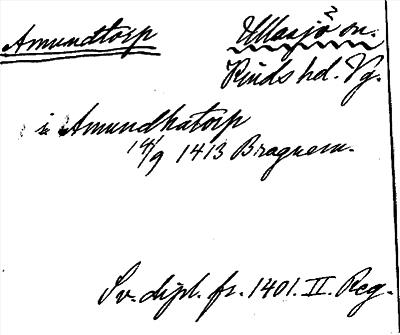 Amundtorp
Ullasjö 2 on.
Kinds hd. Vg.
i Amundhatorp
14/9 1413 Bragnem.
Sv. dipl. fr. 1401. II. Reg.